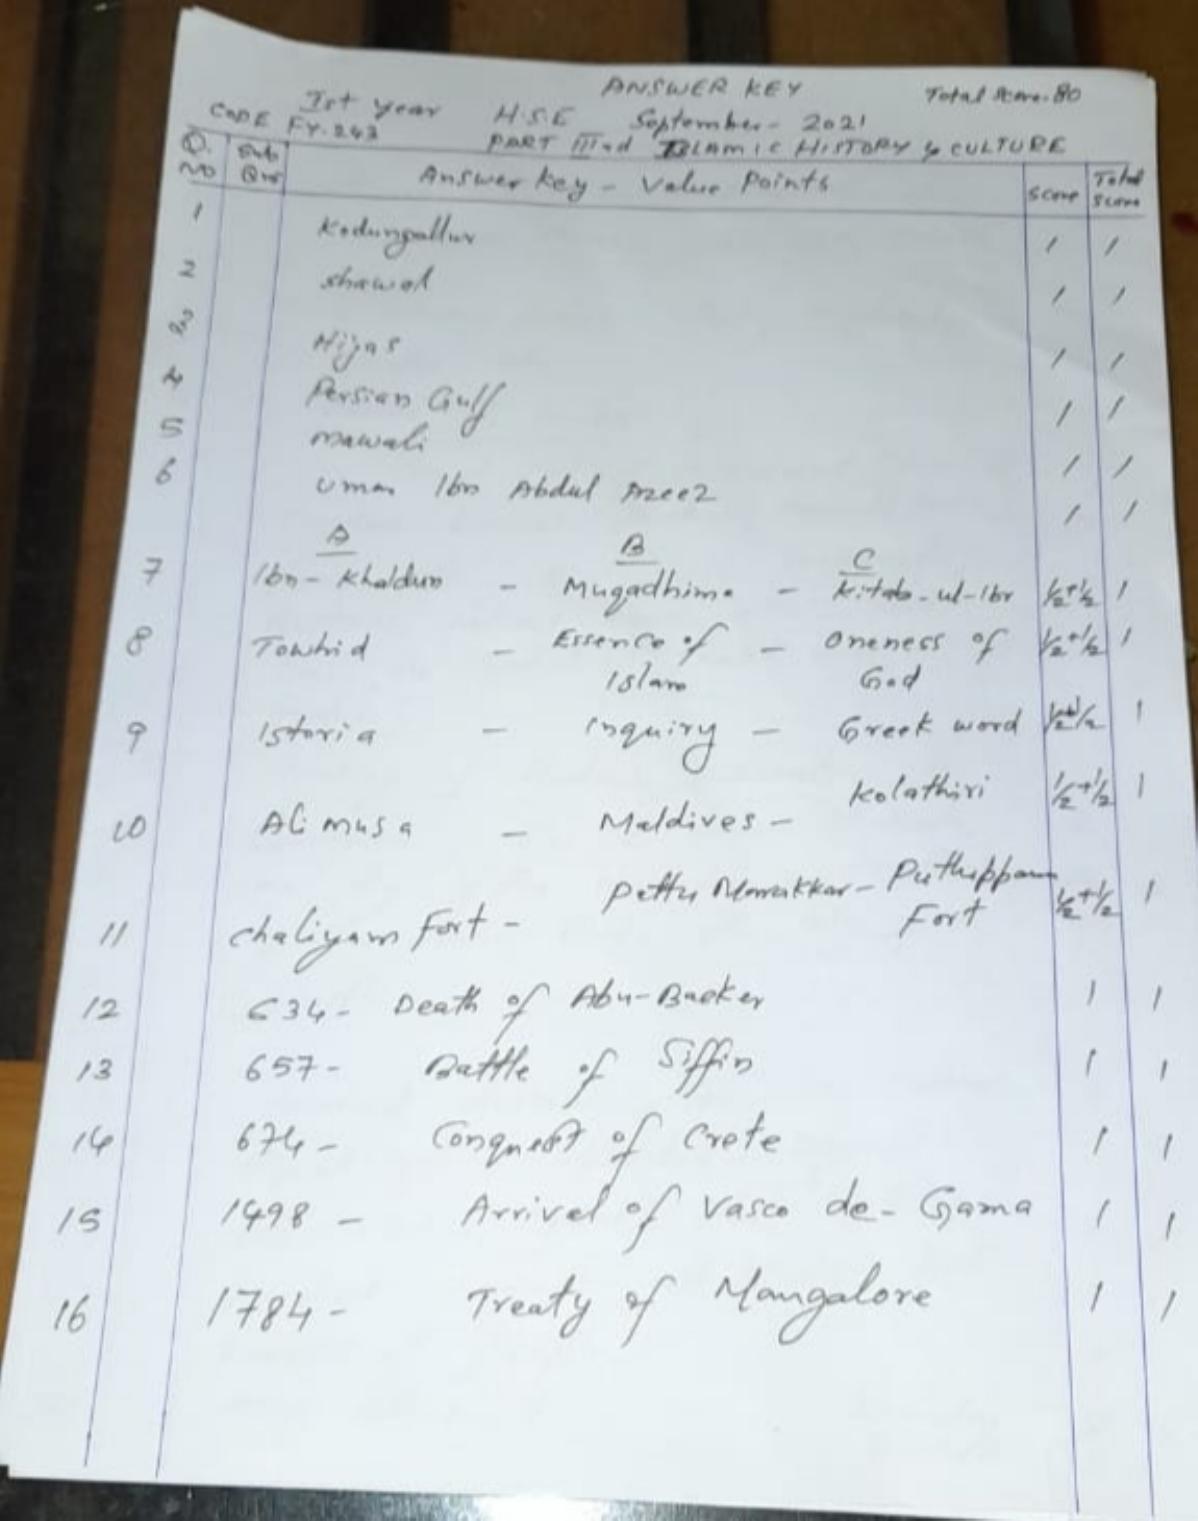 ANSWER KEY Total Score. 80
Ist year H.S.E September - 2021
CODE FY. 243 PART III ISLAMIC HISTORY & CULTURE
Q. No Sub Qns Answer key - Value Points Score Total Score
1 Kodungallur 1 1
2 Shawol 1 1
3 Hijas 1 1
4 Persian Gulf 1 1
5 mawali 1 1
6 Umar Ibn Abdul Azeez 1 1
A B C
7 Ibn - Khaldun - Muqadhima - Kitab-ul-Ibr 1/2+1/2 1
8 Towhid - Essence of Islam - Oneness of God 1/2+1/2 1
9 Istoria - Inquiry - Greek word 1/2+1/2 1
10 Ali musa - Maldives - Kolathiri 1/2+1/2 1
11 Chaliyam Fort - Pattu Marakkar - Puthuppanam Fort 1/2+1/2 1
12 634 - Death of Abu-Backer 1 1
13 657 - Battle of Siffin 1 1
14 674 - Conquest of Crete 1 1
15 1498 - Arrival of Vasco de - Gama 1 1
16 1784 - Treaty of Mangalore 1 1